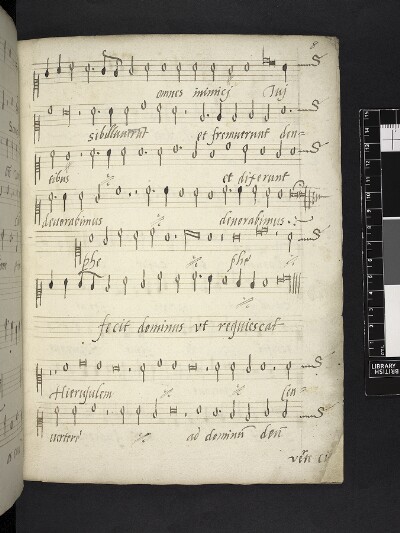 8
omnes inimici Tuj
sibillaverũt et fremuerunt den=
tibus et dixerunt
devorabimus devorabimus
phe phe
fecit dominus ut requiescat
Hierusalem Con
vertere ad dominũ deũ
BRITISH
LIBRARY